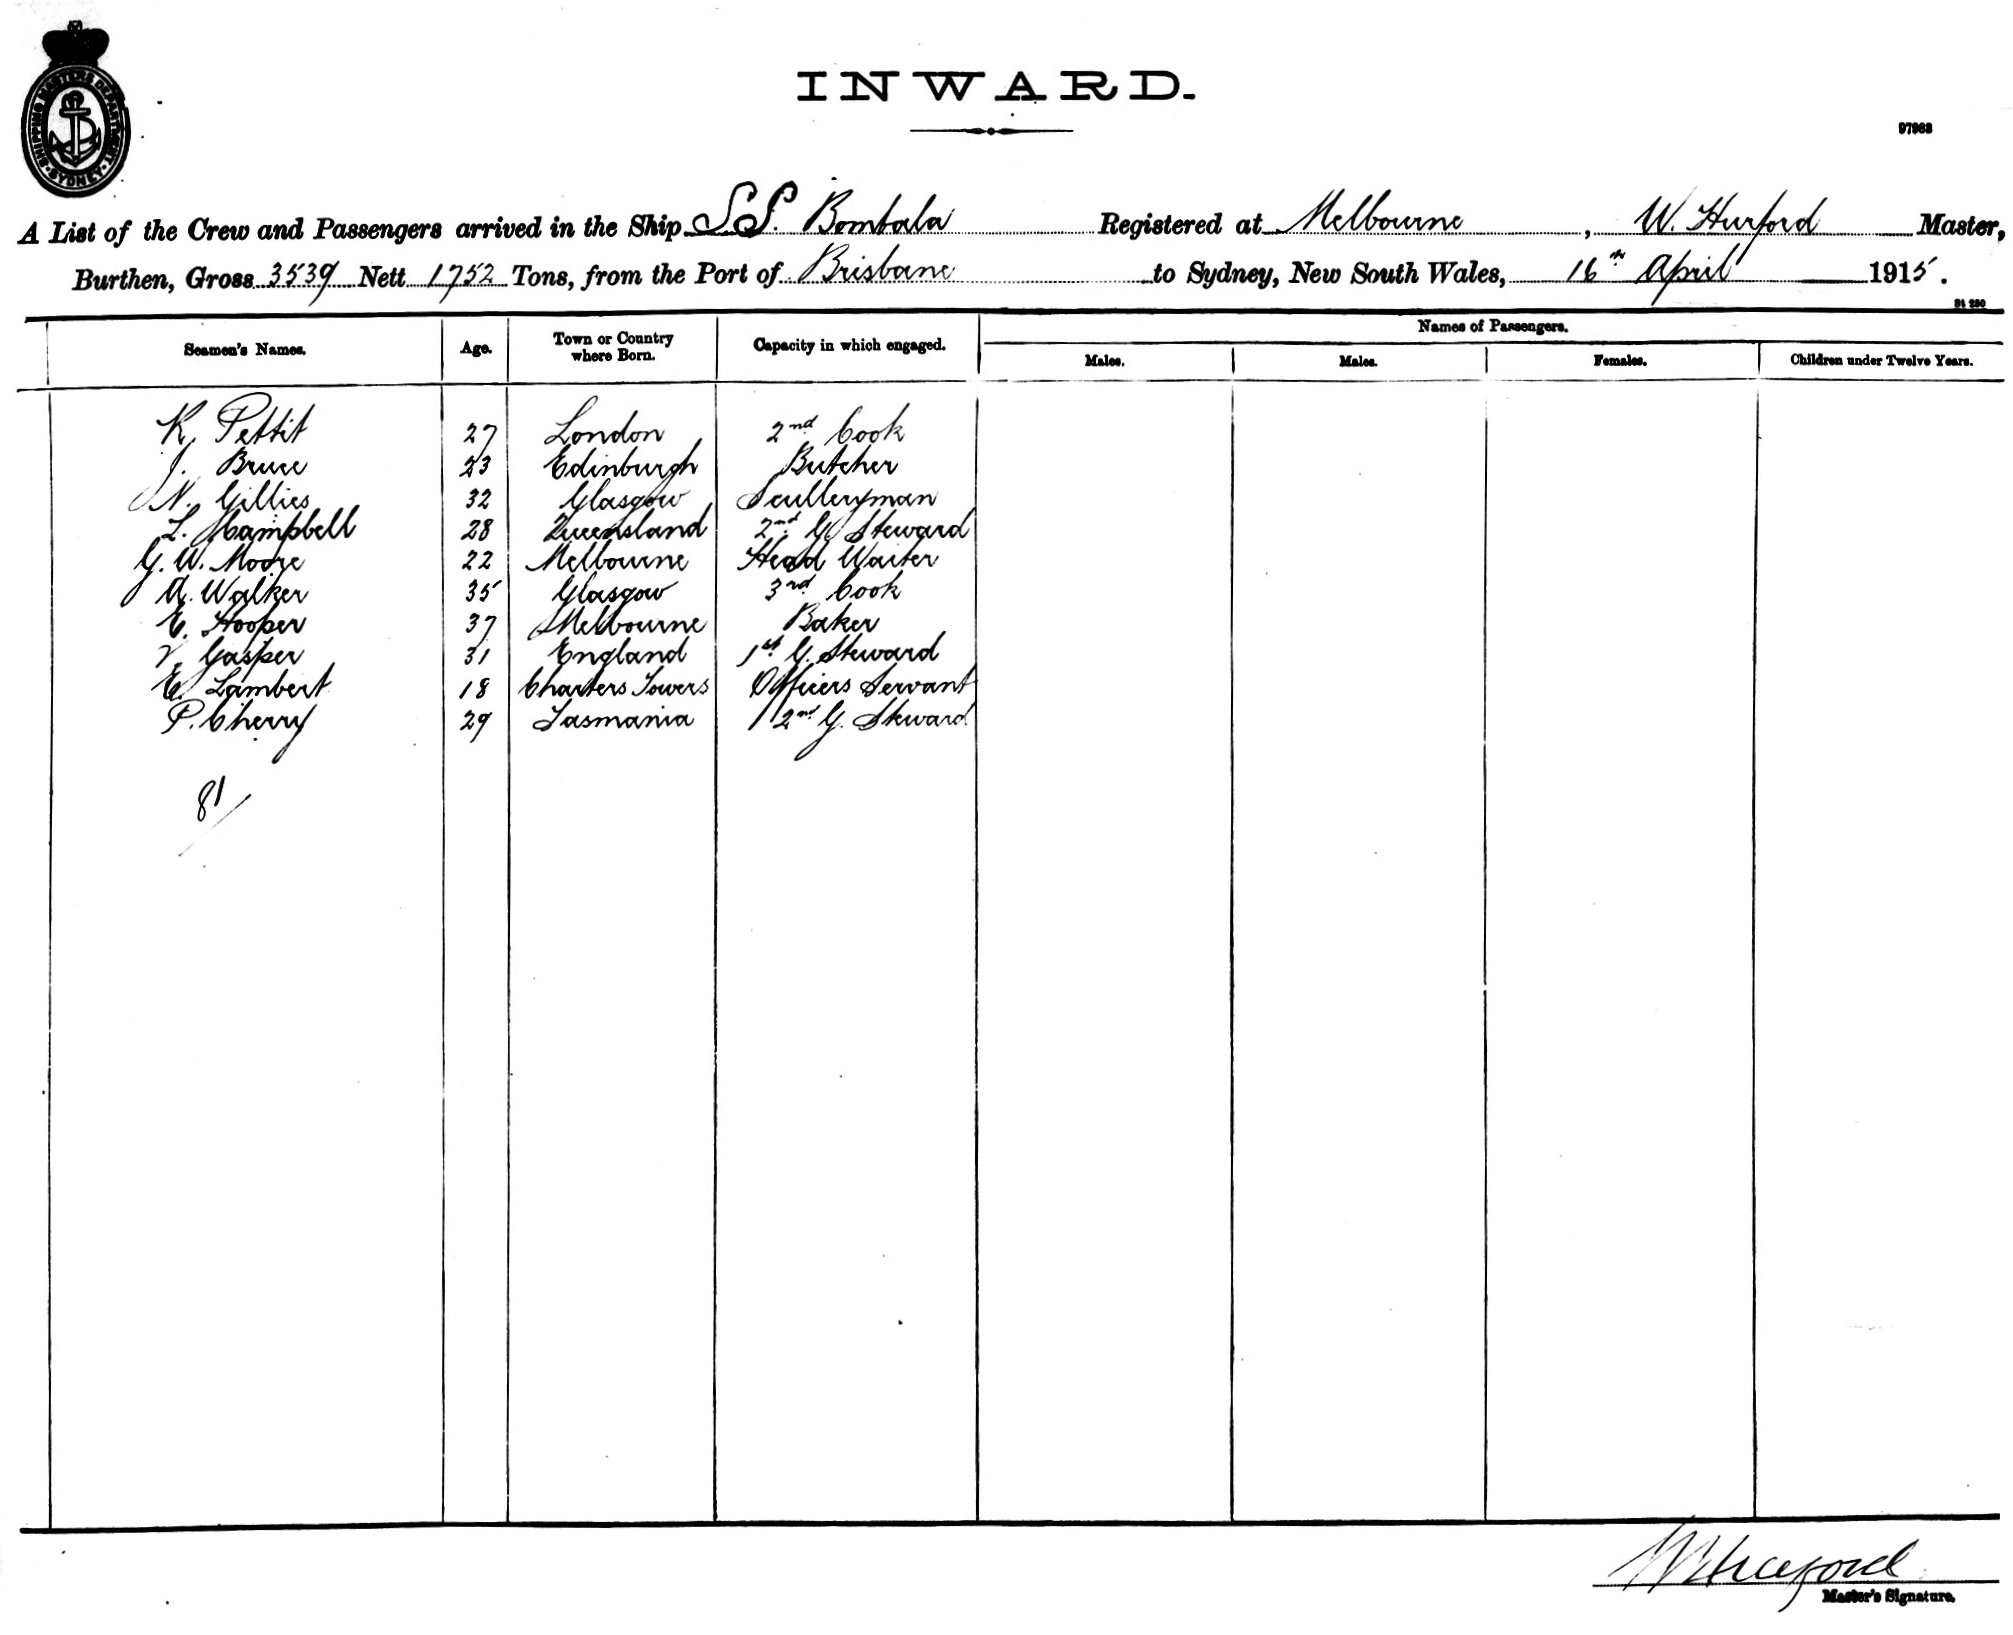 SHIPPING MASTERS DEPARTMENT
SYDNEY
INWARD.
97963
A List of the Crew and Passengers arrived in the Ship S.S. Bombala Registered at Melbourne, W. Hurford Master,
Burthen, Gross 3539 Nett 1752 Tons, from the Port of Brisbane to Sydney, New South Wales, 16th April 1915.
St 250
Names of Passengers.
Seamen's Names. Age. Town or Country where Born. Capacity in which engaged. Males. Males. Females. Children under Twelve Years.
K. Pettit 27 London 2nd Cook
J. Bruce 23 Edinburgh Butcher
N. Gillies 32 Glasgow Sculleryman
L. Campbell 28 Queensland 2nd G. Steward
G. W. Moore 22 Melbourne Head Waiter
A. Walker 35 Glasgow 3rd Cook
E. Hooper 37 Melbourne Baker
V. Gasper 31 England 1st G. Steward
E. Lambert 18 Charters Towers Officers Servant
P. Cherry 29 Tasmania 2nd G. Steward
81
W Hurford
Master's Signature.